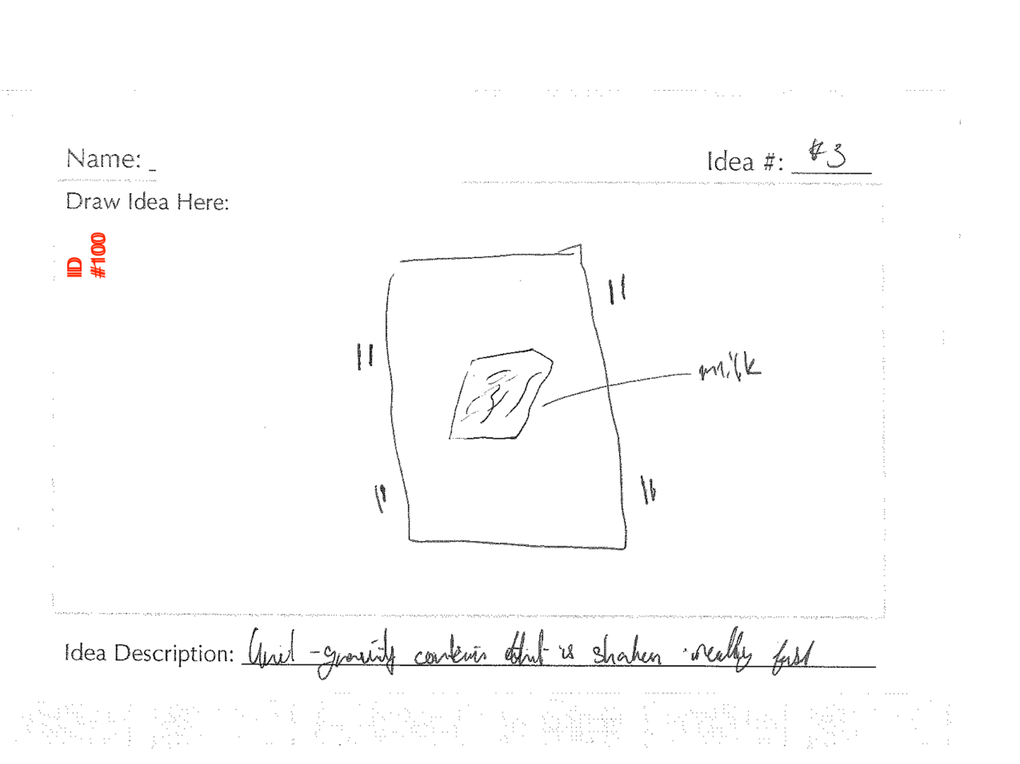 Name: _
Idea #: #3
Draw Idea Here:
ID
#100
milk
Idea Description: -gravity that is shaken really fast